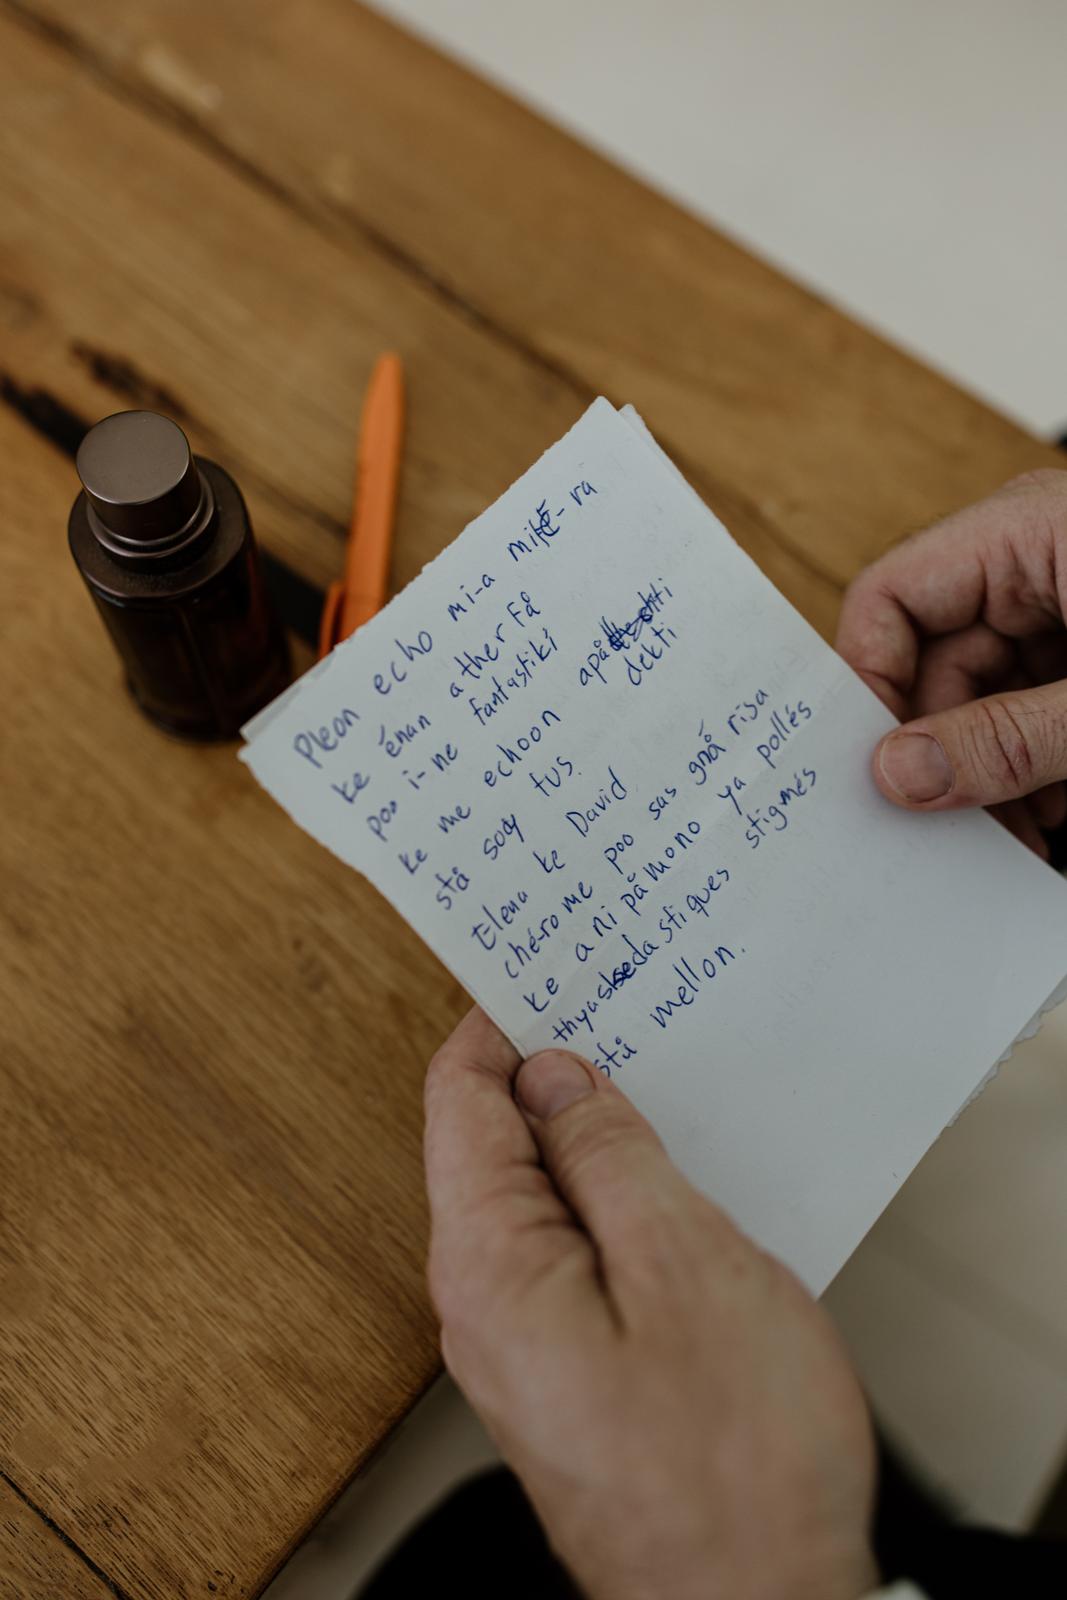 Pleon echo mi-a mitē-ra
ke énan a ther Få
poo i-ne fantastikí
ke me echoon apå dekti
stå soy tus.
Elena ke David
ché-ro me poo sas gnå risa
ke a ni på mono ya pollés
thya da stiques stigmés
stå mellon.